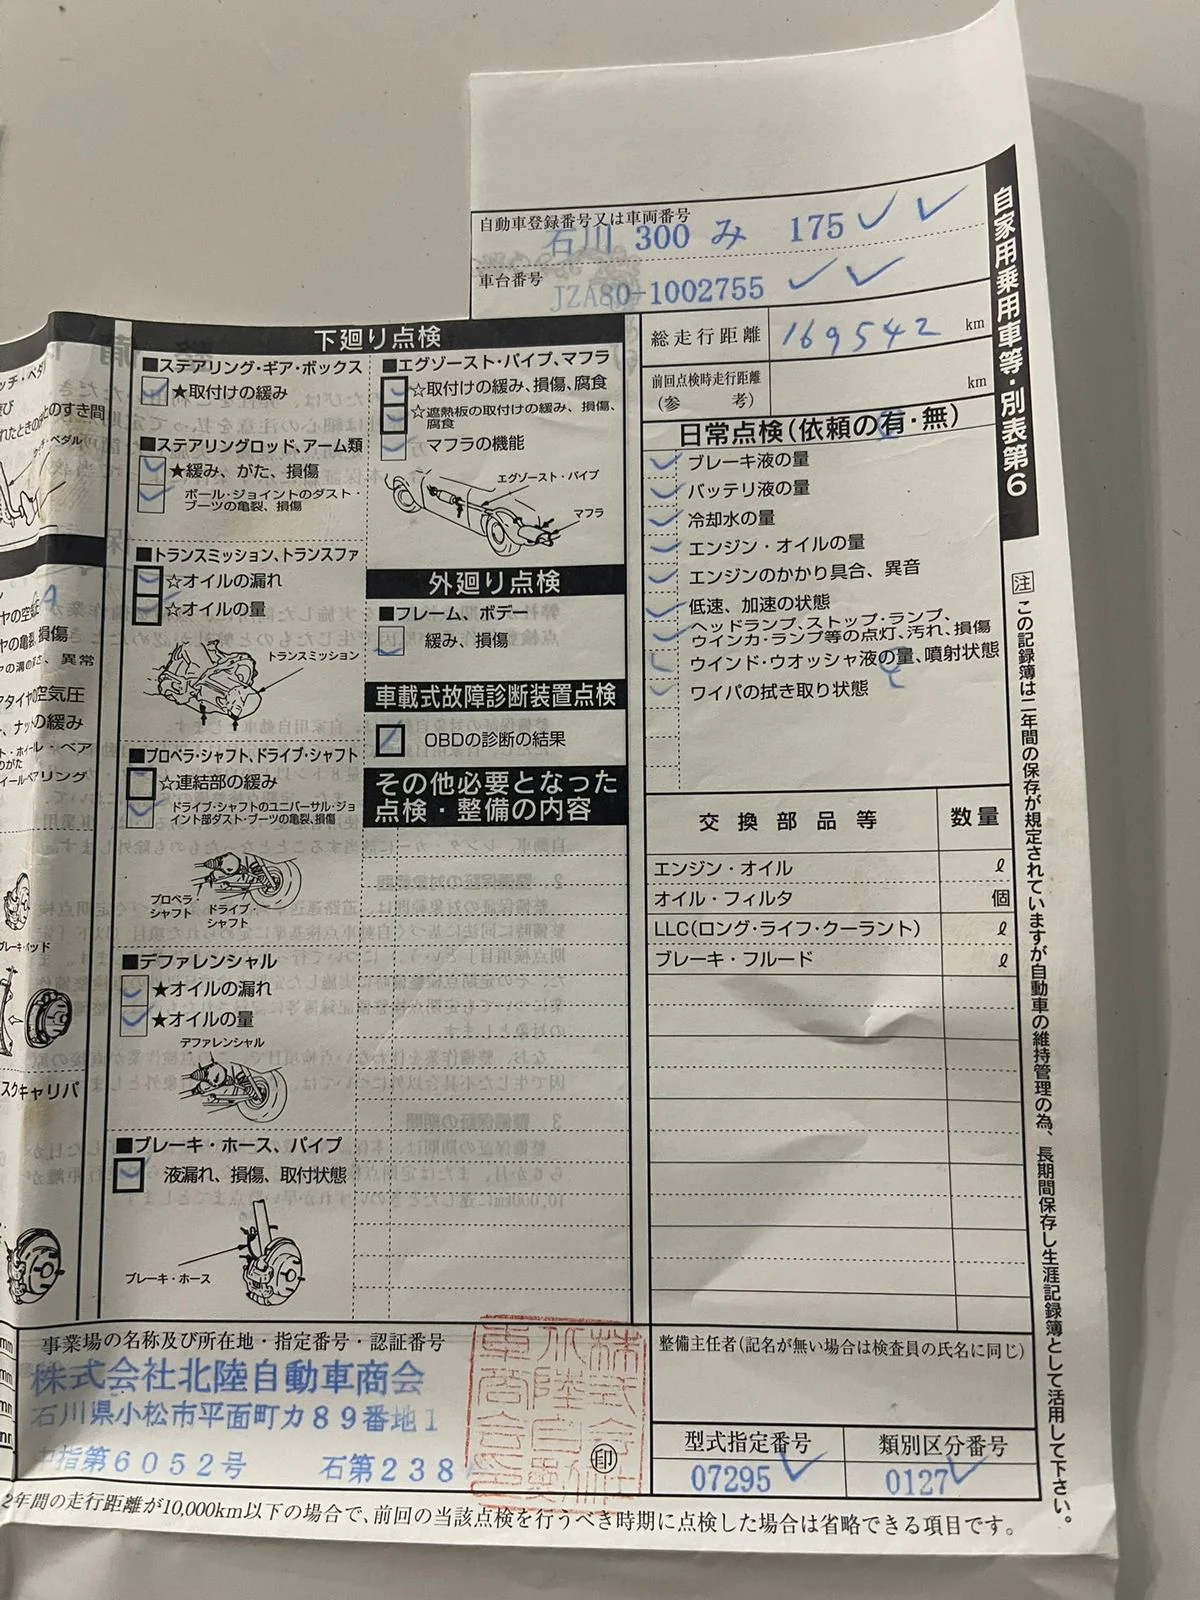 自家用乗用車等・別表第6
自動車登録番号又は車両番号
石川 300 み 175
車台番号
JZA80-1002755
総走行距離
169542 km
前回点検時走行距離
(参 考)
km
日常点検(依頼の有・無)
ブレーキ液の量
バッテリ液の量
冷却水の量
エンジン・オイルの量
エンジンのかかり具合、異音
低速、加速の状態
ヘッドランプ、ストップ・ランプ、
ウインカ・ランプ等の点灯、汚れ、損傷
ウインド・ウオッシャ液の量、噴射状態
ワイパの拭き取り状態
交換部品等 数量
エンジン・オイル ℓ
オイル・フィルタ 個
LLC(ロング・ライフ・クーラント) ℓ
ブレーキ・フルード ℓ
下廻り点検
■ステアリング・ギア・ボックス
★取付けの緩み
■ステアリングロッド、アーム類
★緩み、がた、損傷
ボール・ジョイントのダスト・
ブーツの亀裂、損傷
■トランスミッション、トランスファ
☆オイルの漏れ
☆オイルの量
トランスミッション
■プロペラ・シャフト、ドライブ・シャフト
☆連結部の緩み
ドライブ・シャフトのユニバーサル・ジョ
イント部ダスト・ブーツの亀裂、損傷
プロペラ・
シャフト
ドライブ・
シャフト
■デファレンシャル
★オイルの漏れ
★オイルの量
デファレンシャル
■ブレーキ・ホース、パイプ
液漏れ、損傷、取付状態
ブレーキ・ホース
■エグゾースト・パイプ、マフラ
☆取付けの緩み、損傷、腐食
☆遮熱板の取付けの緩み、損傷、
腐食
マフラの機能
エグゾースト・パイプ
マフラ
外廻り点検
■フレーム、ボデー
緩み、損傷
車載式故障診断装置点検
OBDの診断の結果
その他必要となった
点検・整備の内容
のすき間
損傷
異常
タイヤの空気圧
ナットの緩み
ブレーキ・パッド
スクキャリパ
事業場の名称及び所在地・指定番号・認証番号
株式会社北陸自動車商会
石川県小松市平面町カ89番地1
指第6052号 石第238
印
整備主任者(記名が無い場合は検査員の氏名に同じ)
型式指定番号
07295
類別区分番号
0127
2年間の走行距離が10,000km以下の場合で、前回の当該点検を行うべき時期に点検した場合は省略できる項目です。
注 この記録簿は二年間の保存が規定されていますが自動車の維持管理の為、長期間保存し生涯記録簿として活用して下さい。